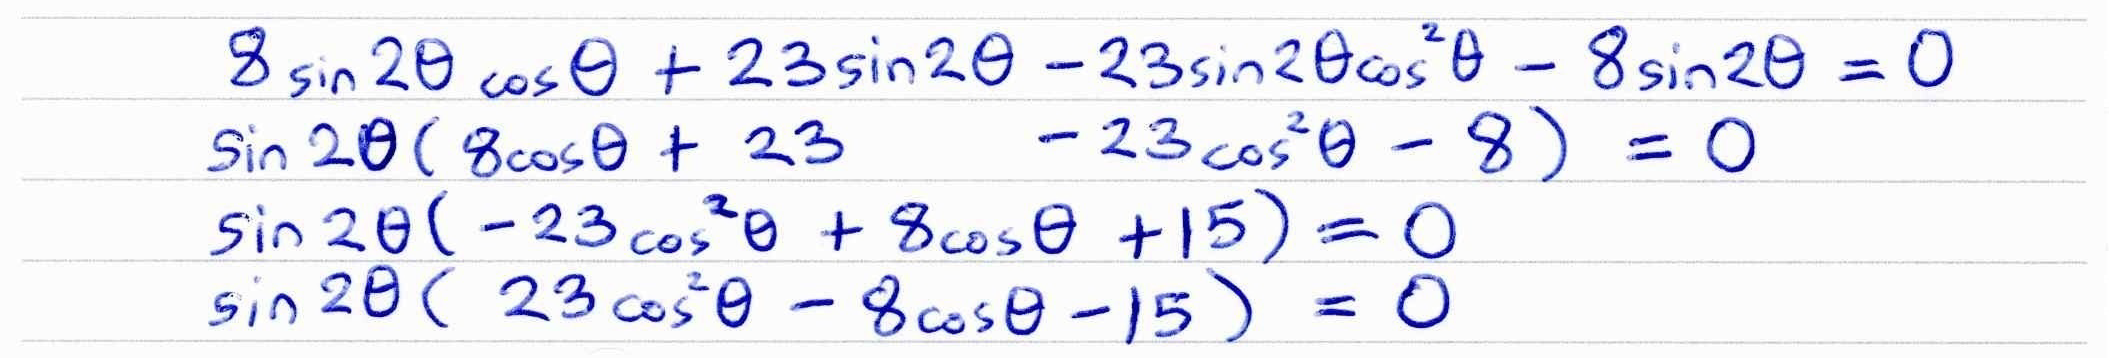 8 sin 2θ cos θ + 23 sin 2θ - 23 sin 2θ cos²θ - 8 sin 2θ = 0
sin 2θ ( 8 cos θ + 23 - 23 cos²θ - 8 ) = 0
sin 2θ ( - 23 cos²θ + 8 cos θ + 15 ) = 0
sin 2θ ( 23 cos²θ - 8 cos θ - 15 ) = 0